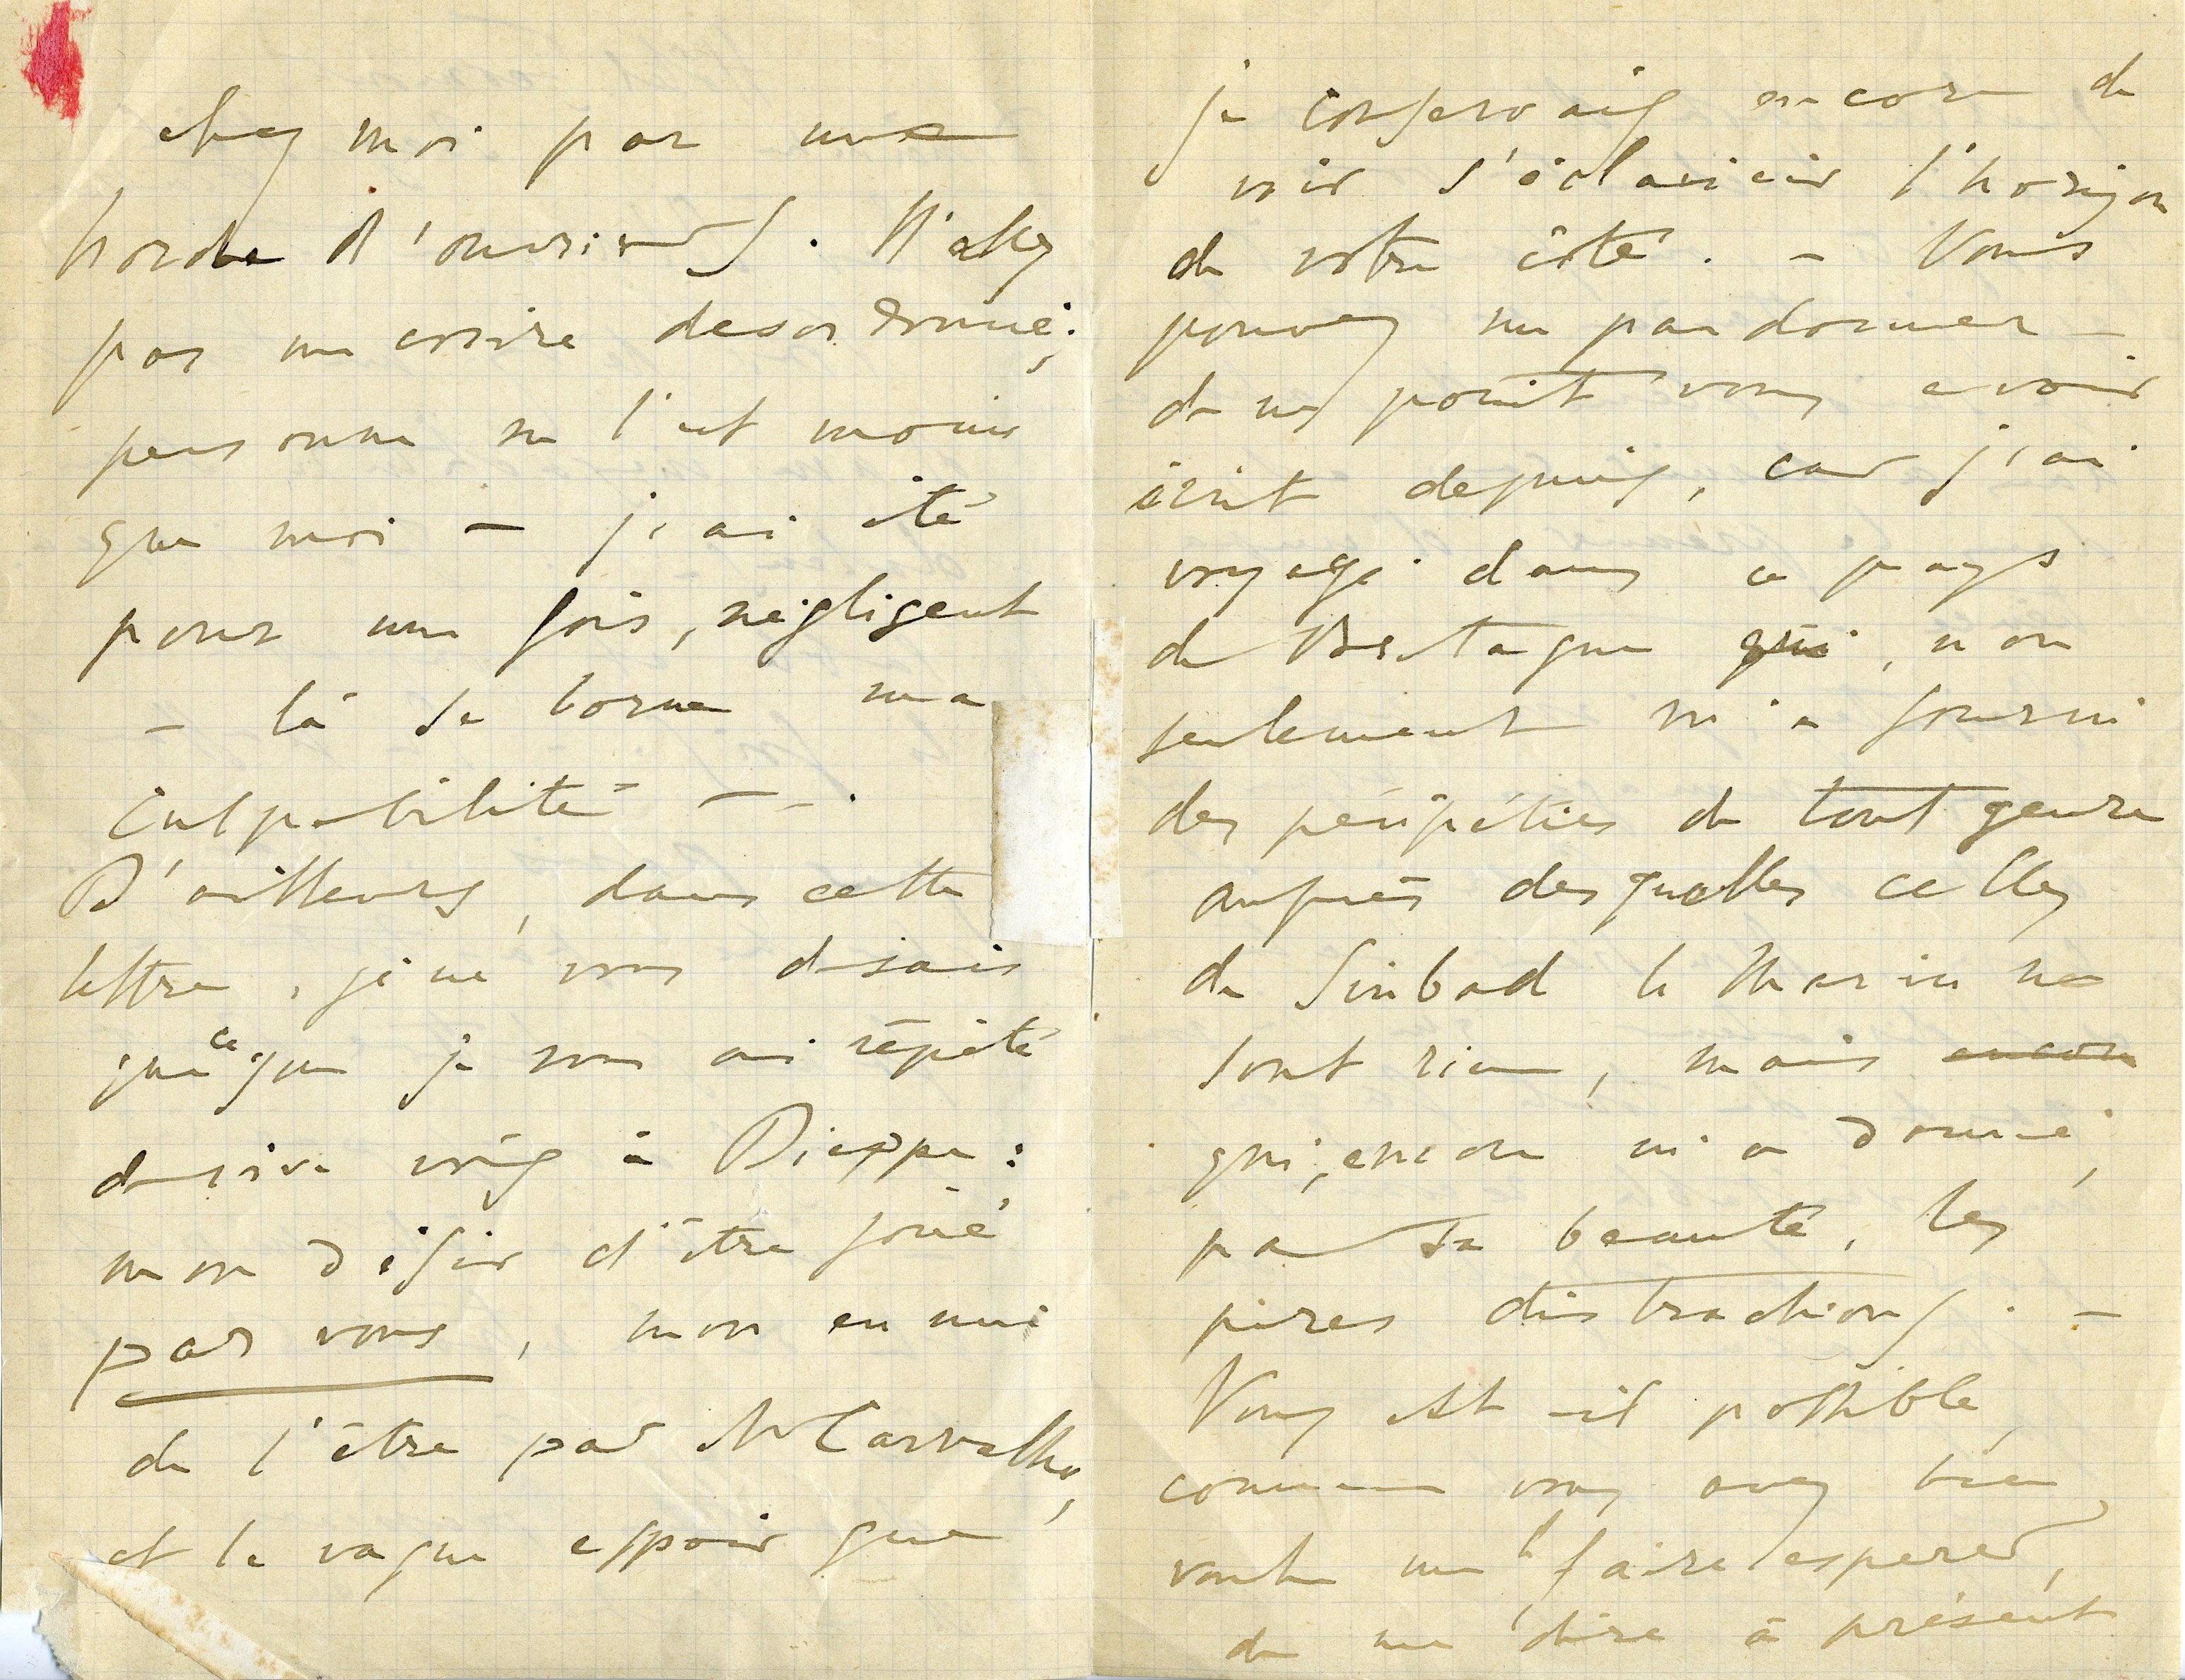 chez moi par une
horde d'ouvriers. N'allez
pas me croire desordonné;
personne ne l'est moins
que moi — j'ai été
pour une fois, négligent
— là se borne ma
culpabilité — .
D'ailleurs, dans cette
lettre, je ne vous disais
que ce que je vous ai répété
de vive voix à Dieppe :
mon désir d'être joué
par vous, mon ennui
de l'être par Mr Carvalho,
et le vague espoir que
je conservais encore de
voir s'éclaircir l'horizon
de votre côté. — Vous
pouvez me pardonner —
de ne point vous avoir
écrit depuis, car j'ai
voyagé dans ce pays
de Bretagne qui, non
seulement m'a fourni
des péripéties de tout genre
auprès desquelles celles
de Sinbad le Marin ne
sont rien, mais encore
qui, encore m'a donné,
par sa beauté, les
pires distractions. —
Vous est-il possible,
comme vous avez bien
voulu me le faire espérer,
de me dire à présent